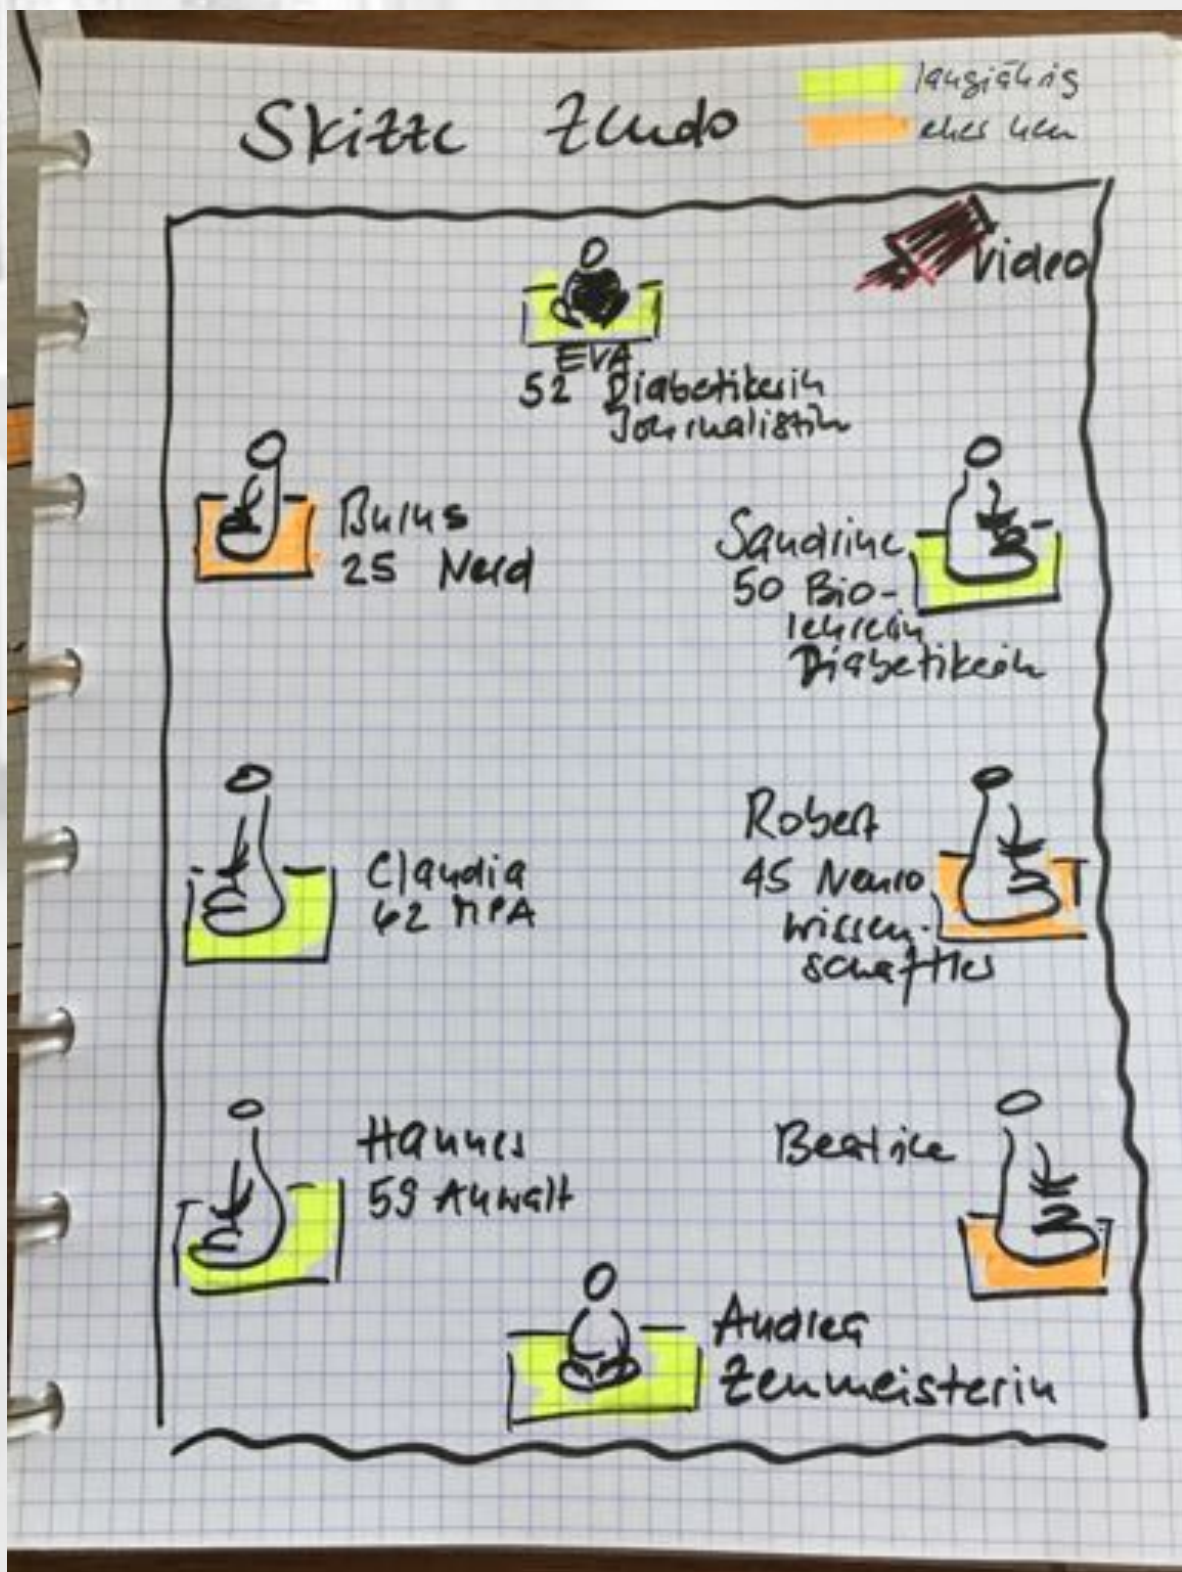 Skizze Zendo
langjährig
eher neu
Video
EVA
52 Diabetikerin
Journalistin
25 Nerd
Sandrine
50 Bio-
lehrerin
Diabetikerin
Claudia
62 MPA
Robert
45 Neuro
wissen-
schaftler
Hannes
59 Anwalt
Beatrice
Andrea
Zenmeisterin